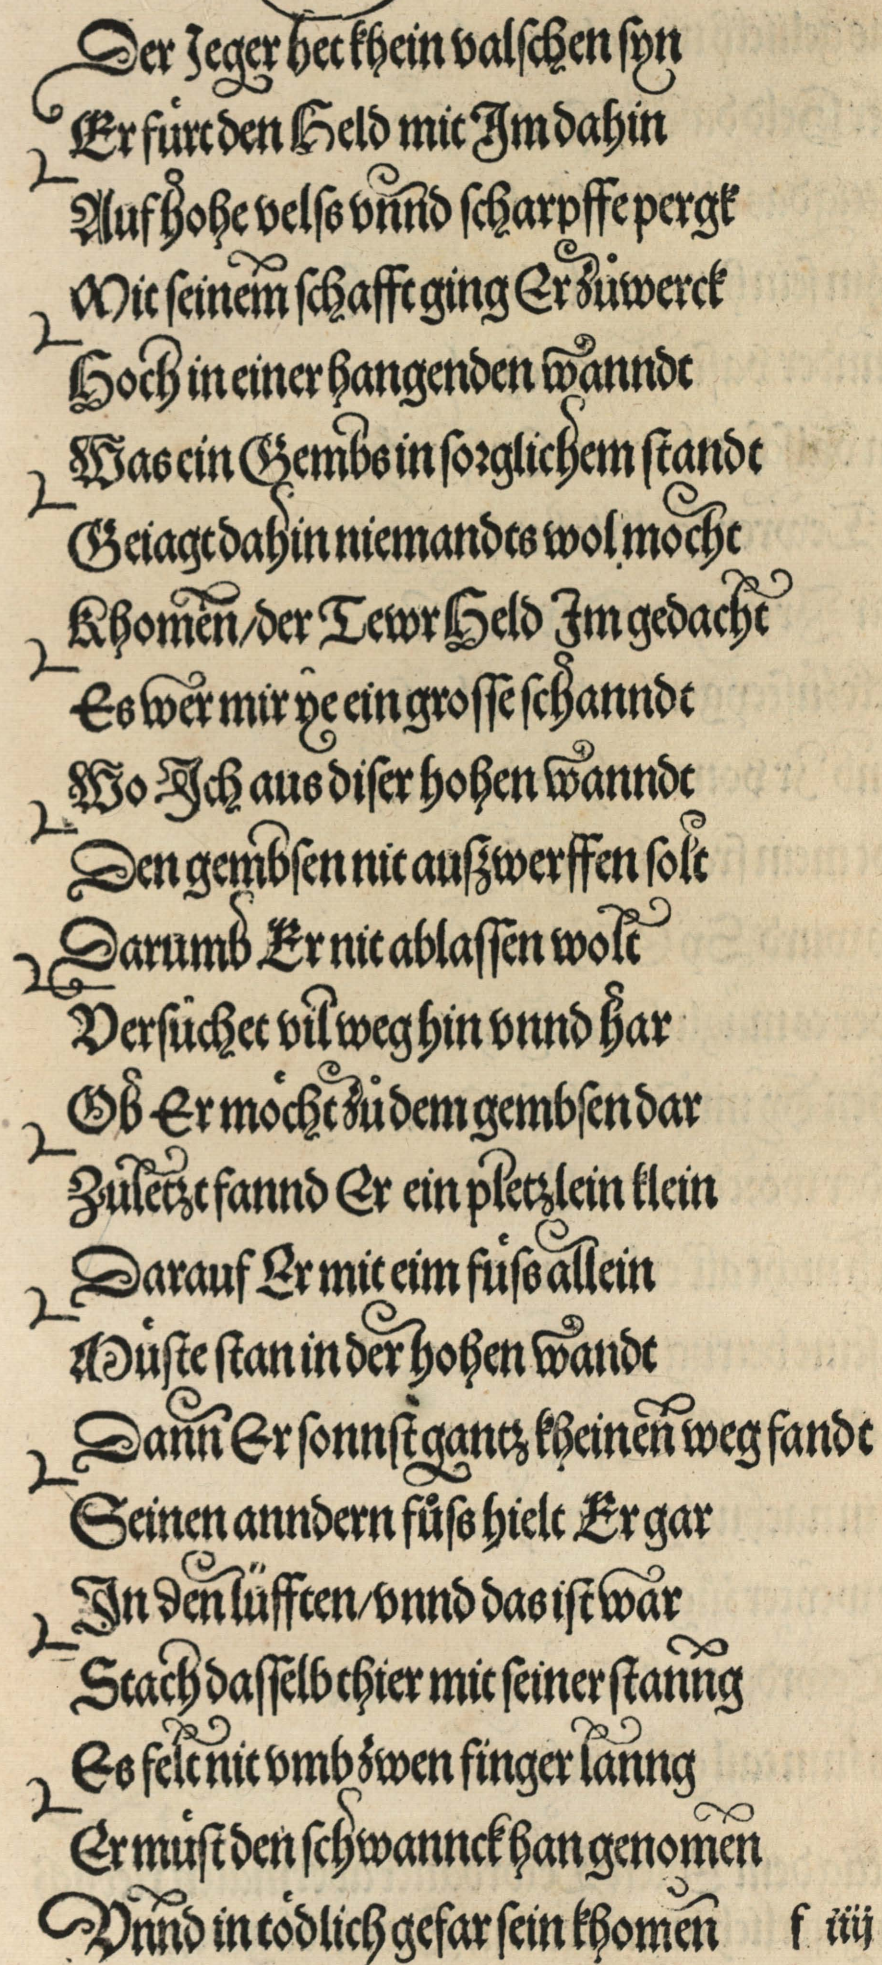 Der Jeger het khein valschen syn
Er fuͤrt den Held mit Im dahin
Auf hohe velss vnnd scharpffe pergk
Mit seinem schafft ging Er zuͦ werck
Hoch in einer hangenden wanndt
Was ein Gembs in sorglichem standt
Geiagt dahin niemandts wol mocht
Khomen/der Tewr Held Im gedacht
Es wer mir ye ein grosse schanndt
Wo Ich aus diser hohen wanndt
Den gembsen nit auszwerffen solt
Darumb Er nit ablassen wolt
Versuͦchet vil weg hin vnnd har
Ob Er moͤcht zuͦ dem gembsen dar
Zuletzt fannd Er ein pletzlein klein
Darauf Er mit eim fuͦss allein
Muͦste stan in der hohen wandt
Dann Er sonnst gantz kheinen weg fandt
Seinen anndern fuͦss hielt Er gar
In den lüfften/vnnd das ist war
Stach dasselb thier mit seiner stanng
Es felt nit vmb zwen finger lanng
Er muͦst den schwannck han genomen
Vnnd in toͤdlich gefar sein khomen f iiij